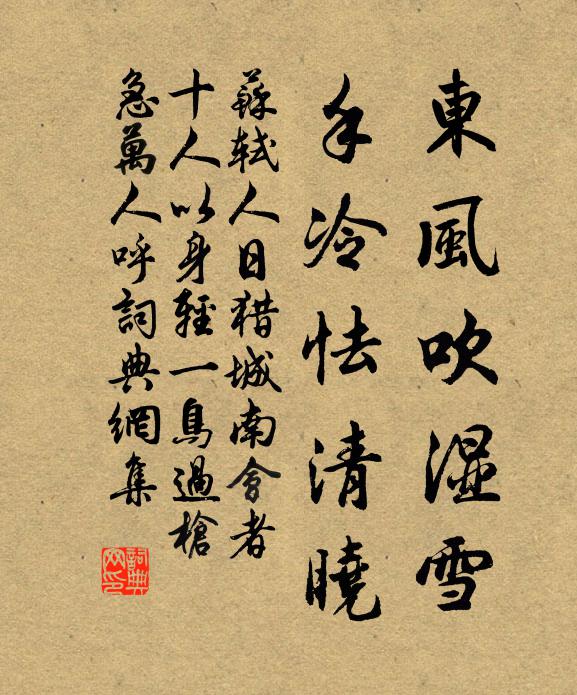 東風吹湿雪
手冷怯清曉
蘇軾人日猎城南會者
十人以身輕一鳥過槍
急萬人呼詞典網集
詞典
网印